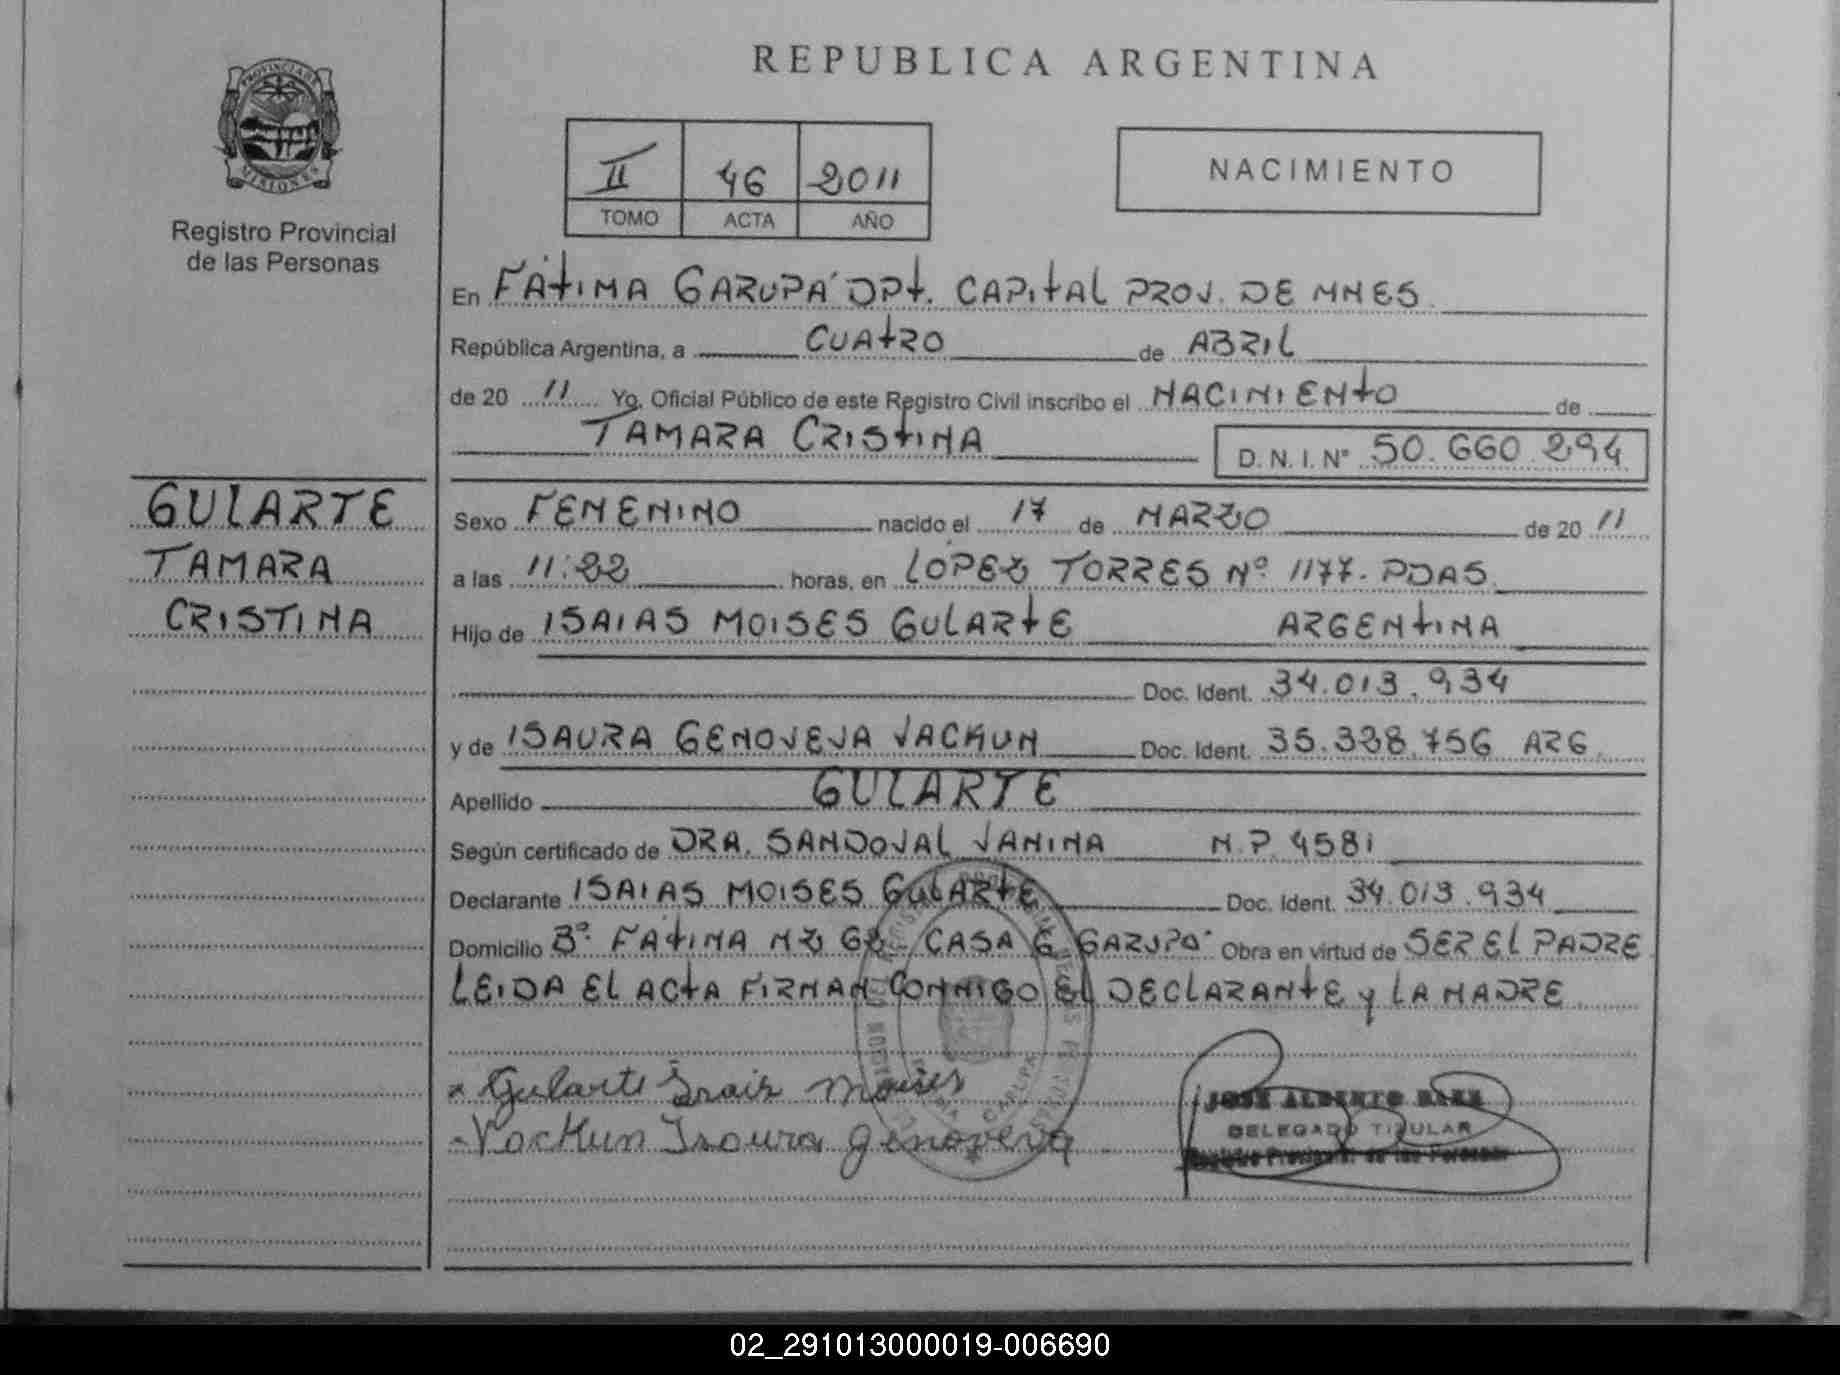 REPUBLICA ARGENTINA
PROVINCIA DE
MISIONES
Registro Provincial
de las Personas
II 46 2011
TOMO ACTA AÑO
NACIMIENTO
En FÁTIMA GARUPÁ DPT. CAPITAL PROV. DE MNES.
República Argentina, a CUATRO de ABRIL
de 20 11 Yo, Oficial Público de este Registro Civil inscribo el NACIMIENTO de
TAMARA CRISTINA D. N. I. Nº 50.660.294
GULARTE
TAMARA
CRISTINA
Sexo FEMENINO nacido el 17 de MARZO de 20 11
a las 11:22 horas, en LÓPEZ TORRES Nº 1177. PDAS.
Hijo de ISAIAS MOISES GULARTE ARGENTINA
Doc. Ident. 34.013.934
y de ISAURA GENOVEVA VACKUN Doc. Ident. 35.328.756 ARG.
Apellido GULARTE
Según certificado de DRA. SANDOVAL VANINA M.P. 4581
Declarante ISAIAS MOISES GULARTE Doc. Ident. 34.013.934
Domicilio Bº FATIMA MZ 62 CASA 6 GARUPÁ Obra en virtud de SER EL PADRE
LEIDA EL ACTA FIRMAN CONMIGO EL DECLARANTE y LA MADRE
Gularte Isaias Moises
Vackun Isaura genoveva
JOSE ALBERTO BAEZ
DELEGADO TITULAR
Registro Provincial de las Personas
02_291013000019-006690